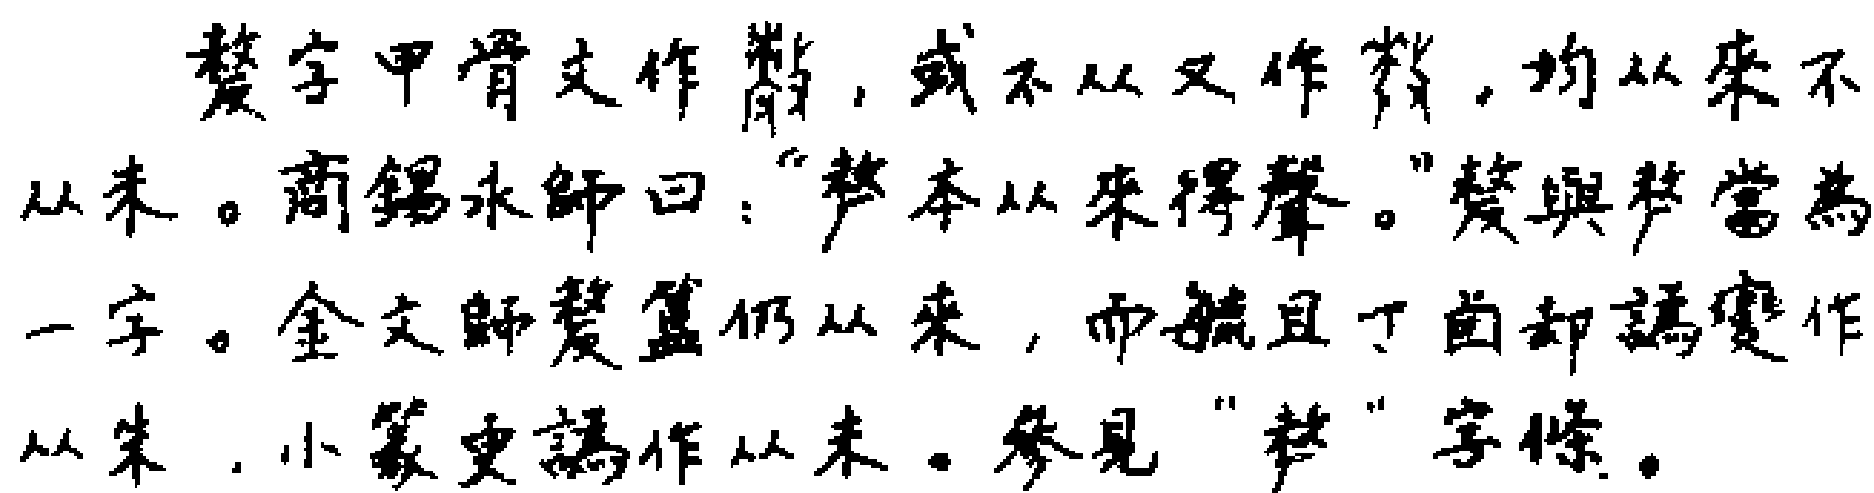 氂字甲骨文作，或不从又作，均从來不
从未。商錫永師曰：“𠩺本从來得聲。”氂與𠩺當為
一字。金文師氂簋仍从來，而毓且丁卣却譌變作
从朱，小篆更譌作从未。參見“𠩺”字條。